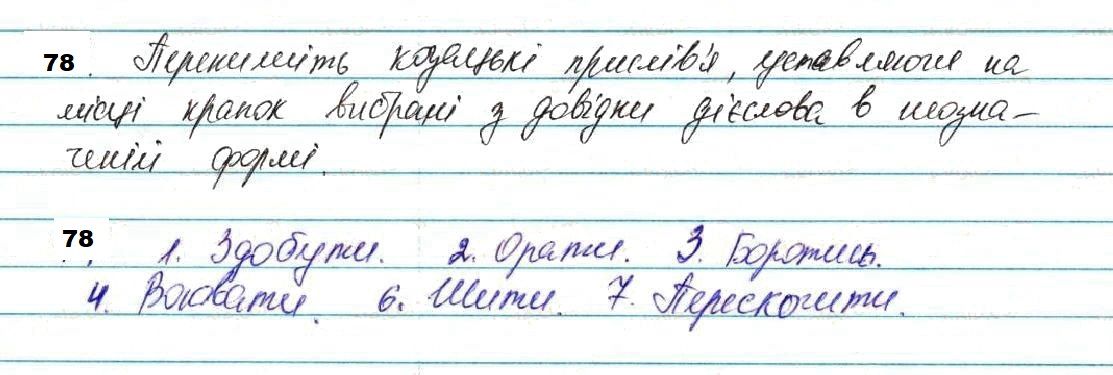 78. Перепишіть козацькі прислів'я, уставляючи на
місці крапок вибрані з довідки дієслова в неозна-
ченій формі.
78. 1. Здобути. 2. Орати. 3. Боротись.
4. Воювати. 6. Шити. 7. Перескочити.